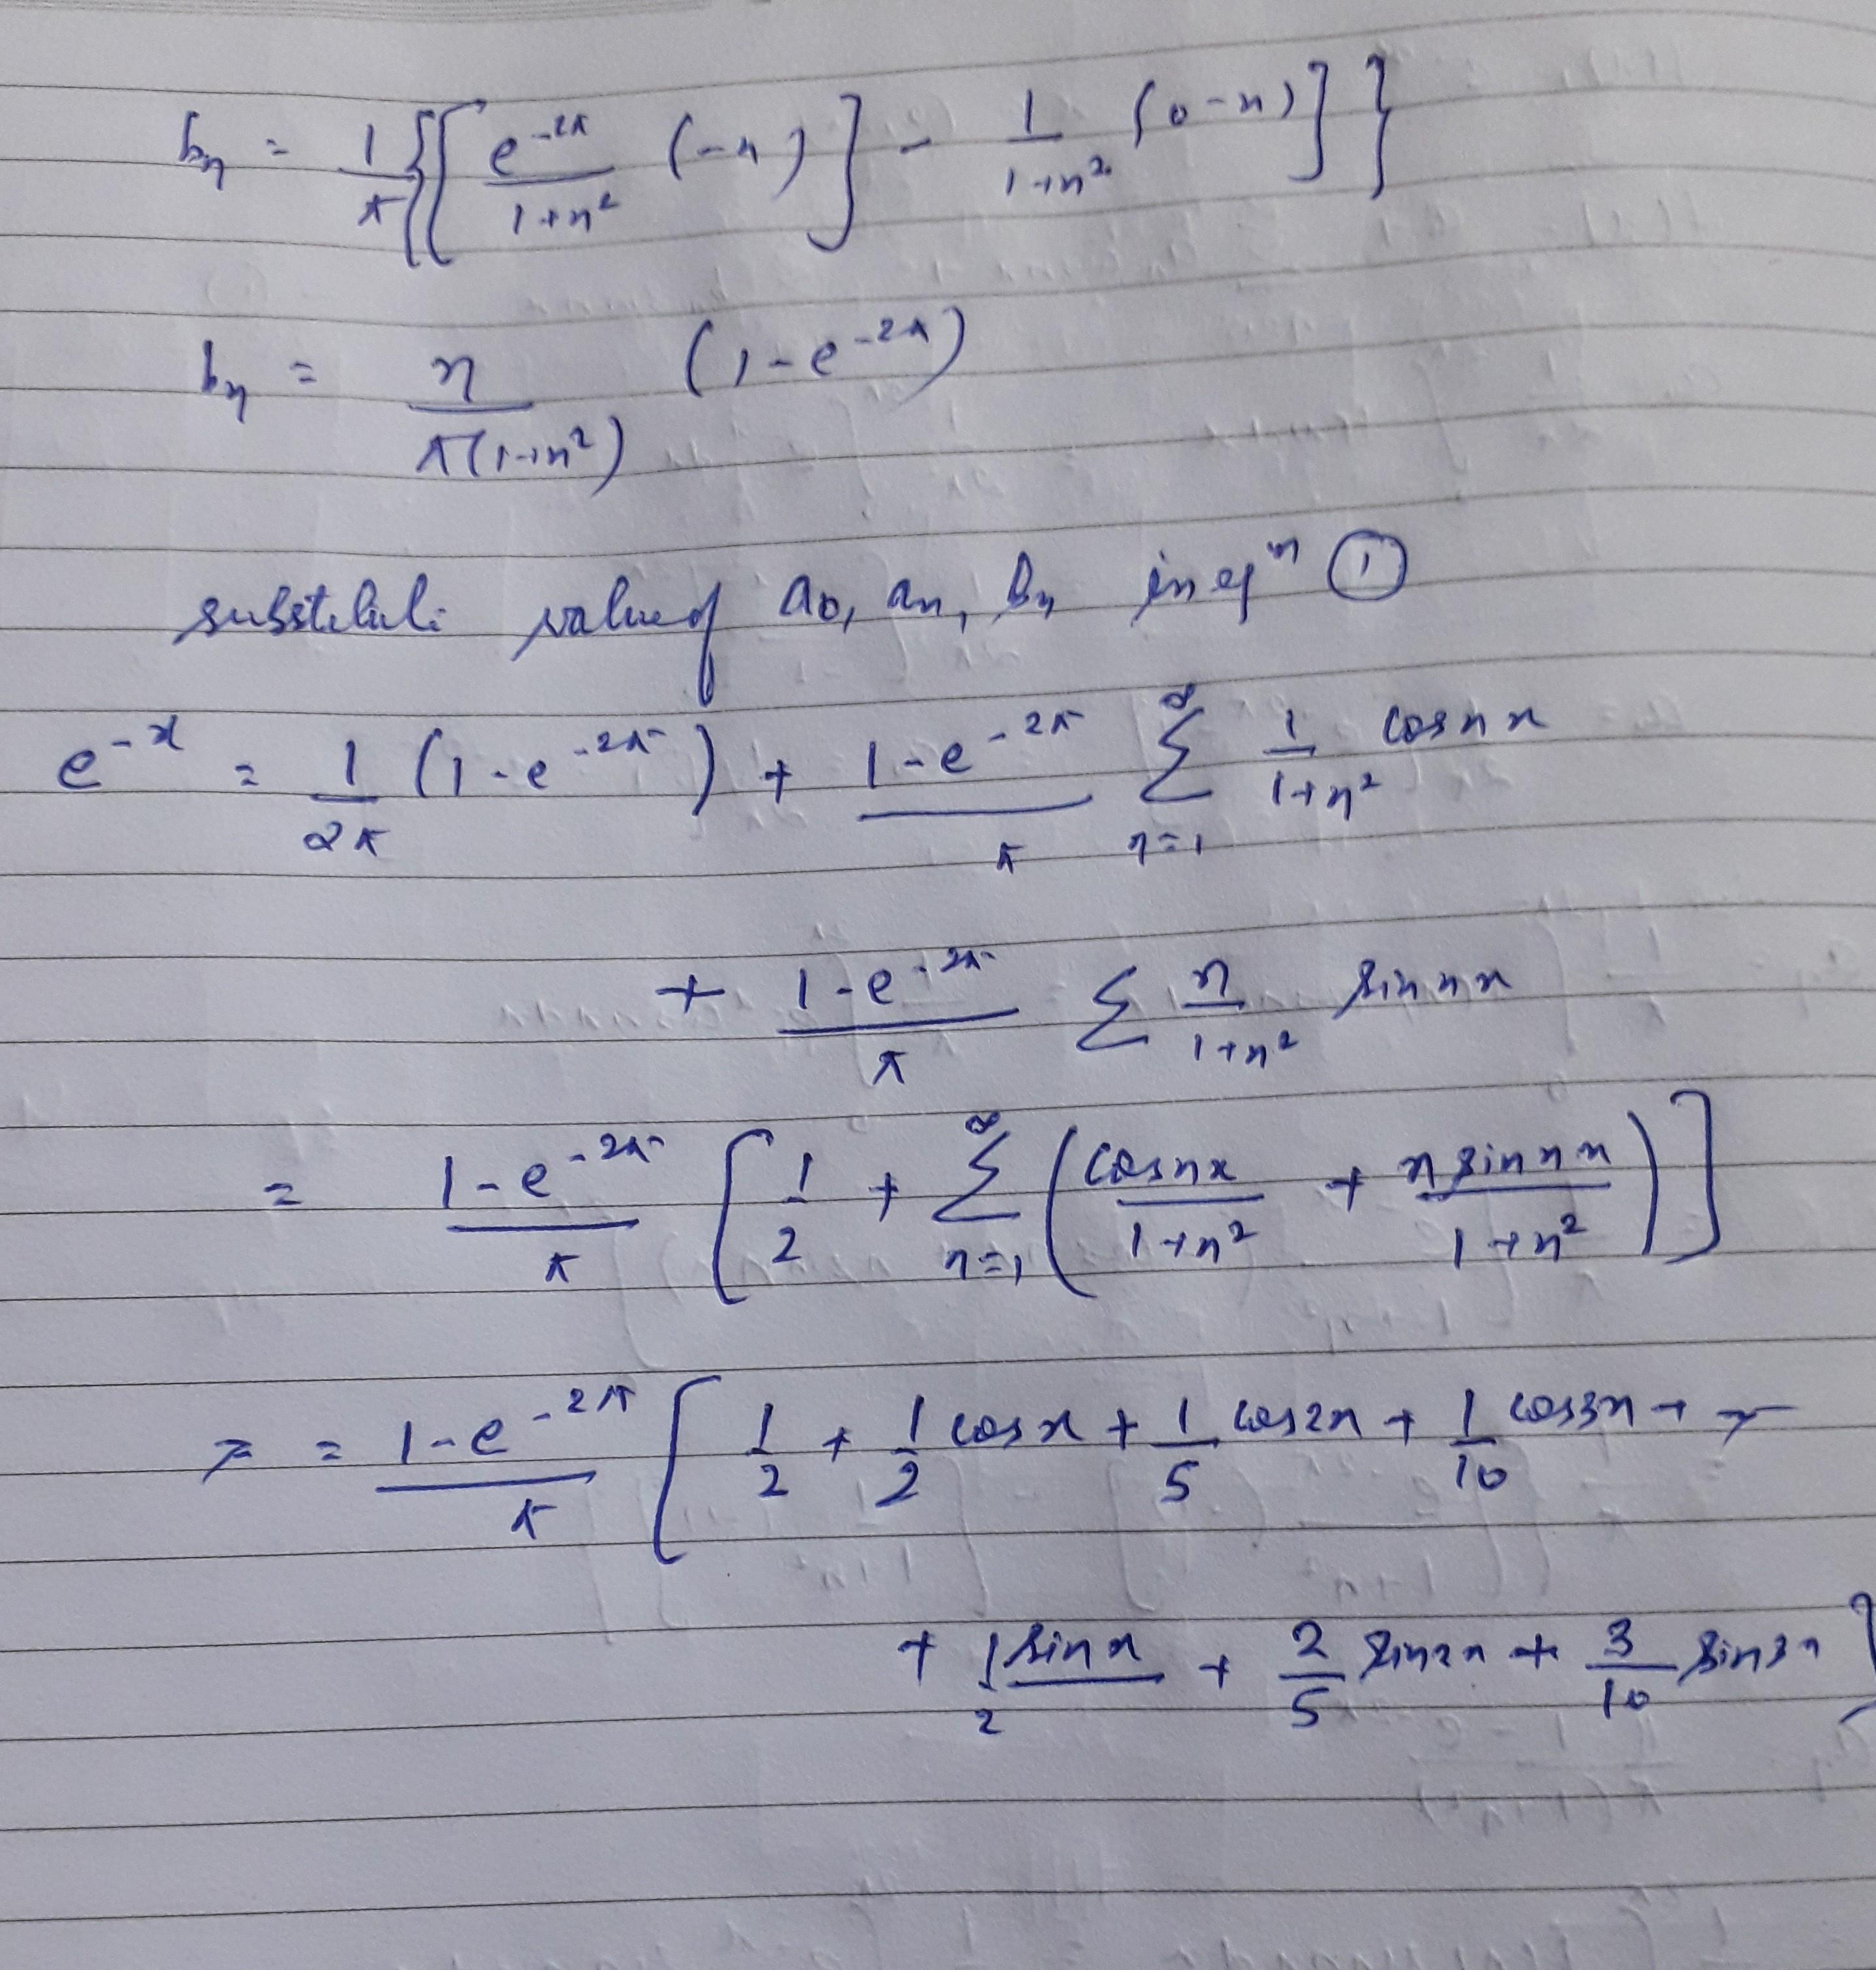 bn = 1/π {[ e^-2π / 1+n² (-n) ] - 1 / 1+n² (0-n) ] }
bn = n / π(1+n²) (1-e^-2π)
substitute value of a0, an, bn in eqn ①
e^-x = 1/2π (1-e^-2π) + 1-e^-2π / π ∑ n=1 ∞ 1 / 1+n² cosnx
+ 1-e^-2π / π ∑ n / 1+n² sin nx
= 1-e^-2π / π [ 1/2 + ∑ n=1 ∞ ( cosnx / 1+n² + n sin nx / 1+n² ) ]
= 1-e^-2π / π [ 1/2 + 1/2 cosx + 1/5 cos2x + 1/10 cos3x +
+ 1/2 sinx + 2/5 sin2x + 3/10 sin3x ]